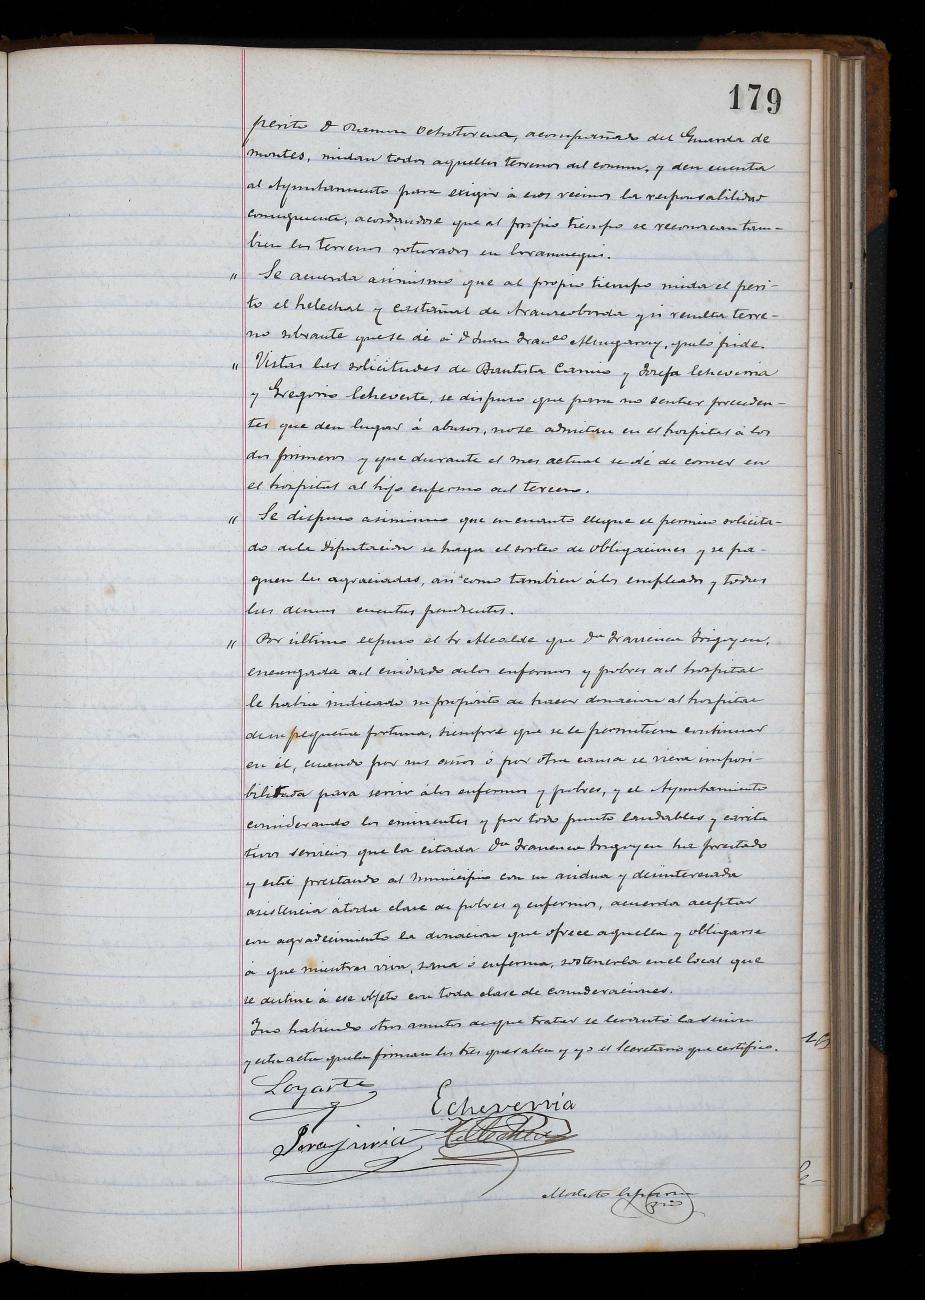 179
perito D Ramon Ochotorena, acompañado del Guarda de
montes, midan todos aquellos terrenos del comun, y den cuenta
al Ayuntamiento para exigir á esos vecinos la responsabilidad
consiguiente, acordandose que al propio tiempo se reconozcan tam-
bien los terrenos roturados en
" Se acuerda asimismo que al propio tiempo mida el peri-
to el helechal y castañal de Aranzeborda y si resulta terre-
no sobrante que se dé á D Juan Franco que lo pide.
" Vistas las solicitudes de Bautista y Josefa Echeverria
y Gregorio Echeveste, se dispuso que para no sentar preceden-
tes que den lugar á abusos, no se admitan en el hospital á los
dos primeros y que durante el mes actual se dé de comer en
el hospital al hijo enfermo del tercero.
" Se dispuso asimismo que en cuanto llegue el permiso solicita-
do de la Diputacion se haga el sorteo de obligaciones y se pa-
guen las agraciadas, asi como tambien á los empleados y todas
las demas cuentas pendientes.
" Por último expuso el Sr Alcalde que Da Francisca Irigoyen,
encargada del cuidado de los enfermos y pobres del hospital
le habia indicado su propósito de hacer donacion al hospital
de su pequeña fortuna, siempre que se le permitiera continuar
en él, cuando por sus años ó por otra causa se viera imposi-
bilitada para servir á los enfermos y pobres, y el Ayuntamiento
considerando los eminentes y por todo punto laudables y carita
tivos servicios que la citada Da Francisca Irigoyen ha prestado
y está prestando al municipio con su asidua y desinteresada
asistencia á toda clase de pobres y enfermos, acuerda aceptar
con agradecimiento la donacion que ofrece aquella y obligarse
á que mientras viva, sana ó enferma, sostenerla en el local que
se destine á ese objeto con toda clase de consideraciones.
Y no habiendo otros asuntos de que tratar se levantó la sesion
y esta acta que la firman los tres que saben y yo el Secretario que certifico.
Loyarte
Echeverria
Modesto